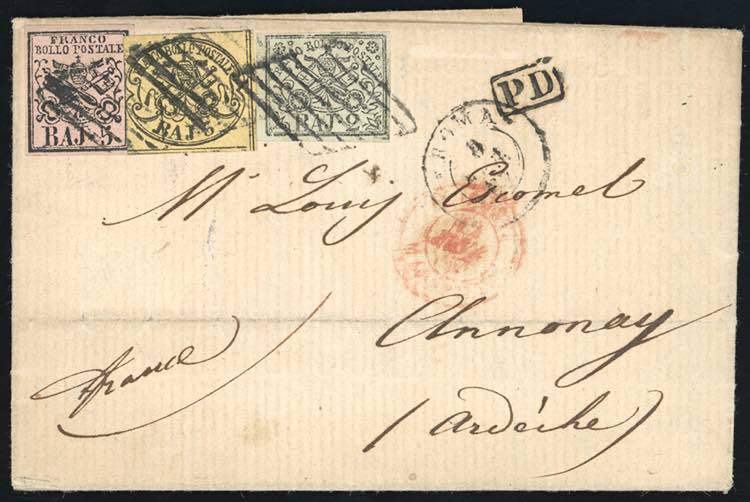 FRANCO
BOLLO POSTALE
BAJ. 5
BOLLO POSTALE
BAJ.
BAJ. 2
PD
ROMA
Mr. Louis
Annonay
France
(Ardèche)